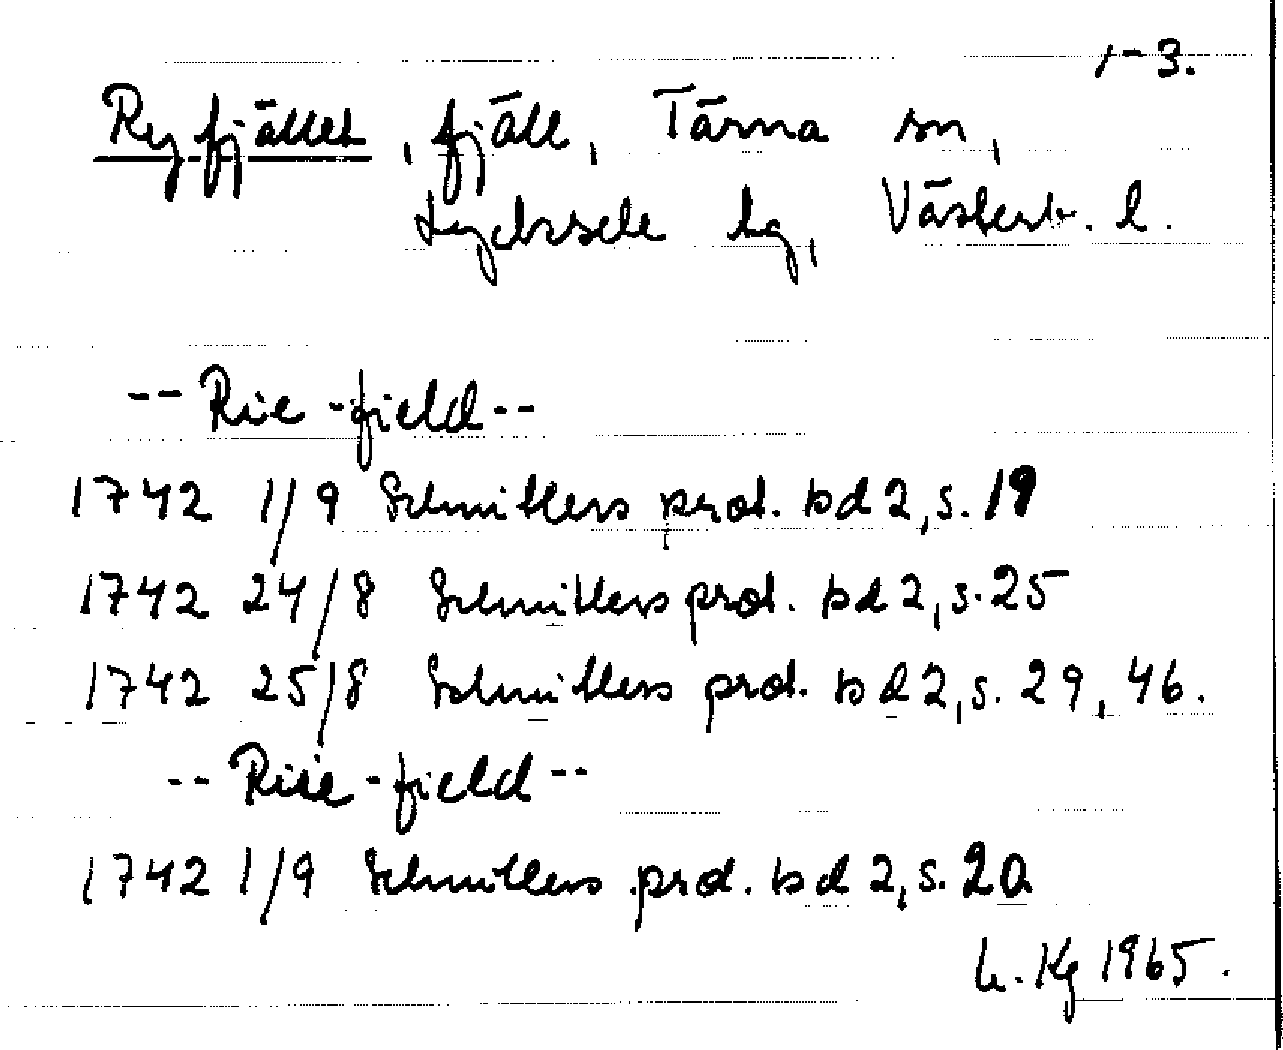 1-3.
Ryfjället, fjäll, Tärna sn,
Lycksele lg, Västerb. l.
-- Rie-field --
1742 1/9 Schnitlers prot. bd 2, s. 19
1742 24/8 Schnitlers prot. bd 2, s. 25
1742 25/8 Schnitlers prot. bd 2, s. 29, 46.
-- Riie-field --
1742 1/9 Schnitlers prot. bd 2, s. 20
L. Kg 1965.